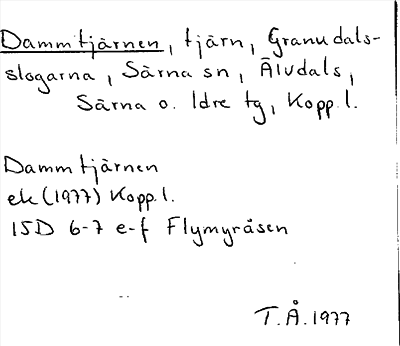 Dammtjärnen, tjärn, Granudals-
slogarna, Särna sn, Älvdals,
Särna o. Idre tg, Kopp.l.
Dammtjärnen
ek (1977) Kopp.l.
15D 6-7 e-f Flymyråsen
T.Å. 1977